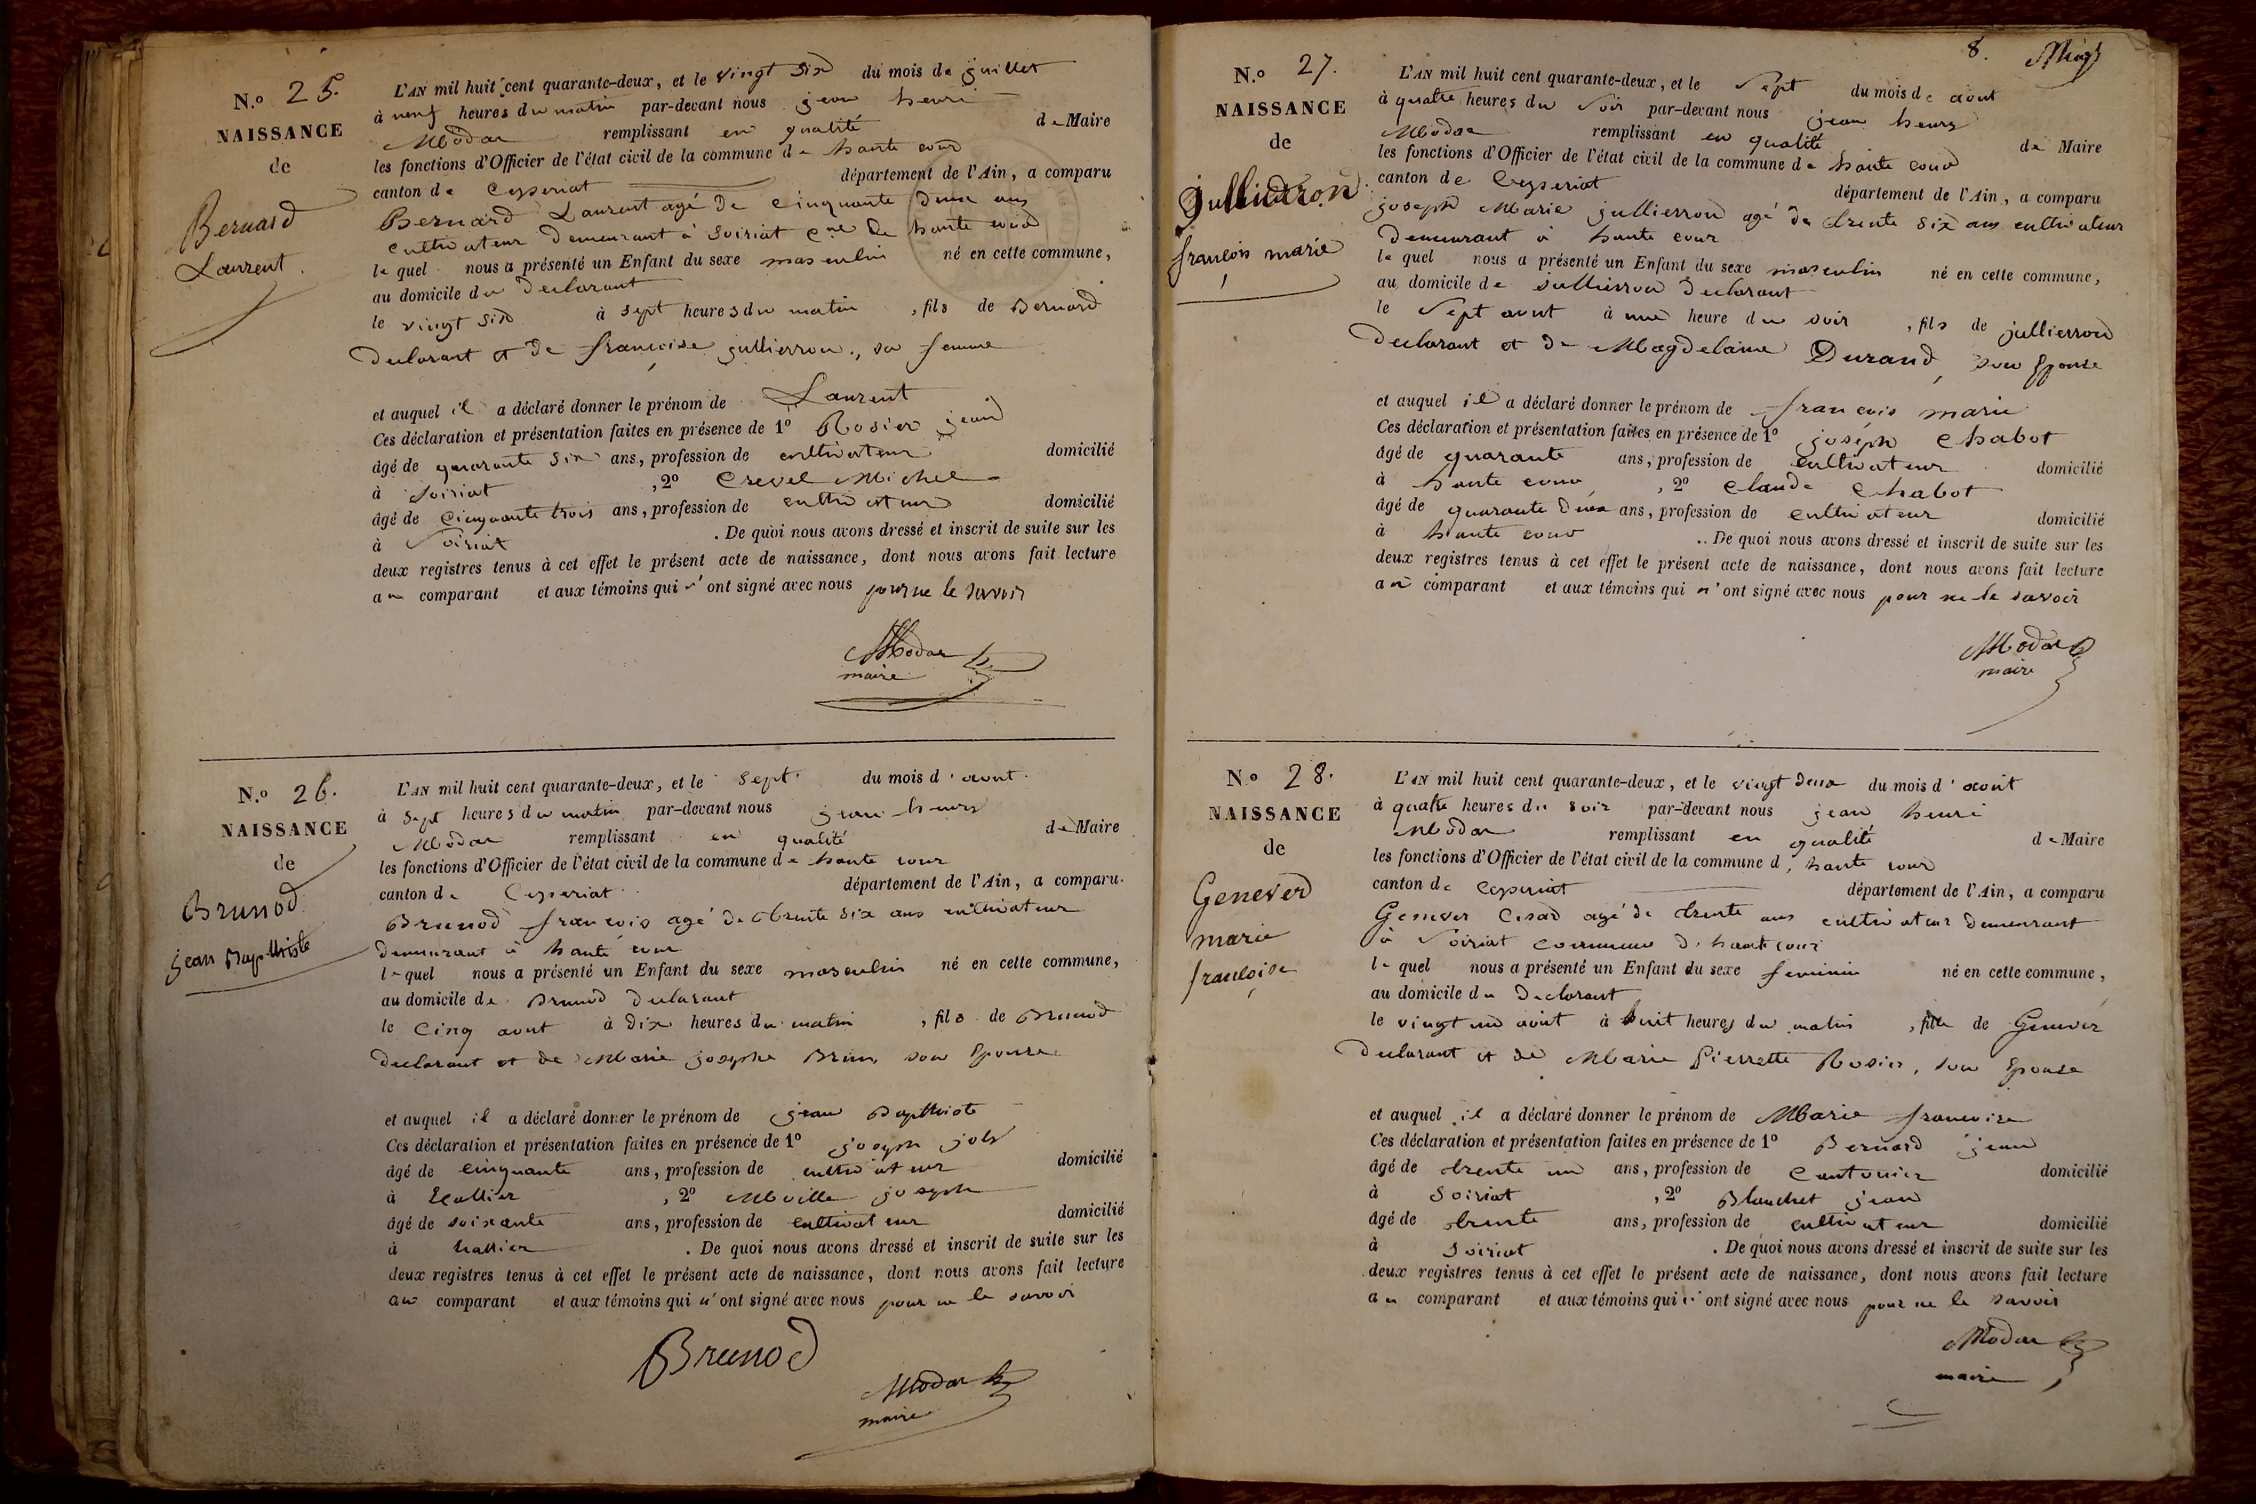 N.o 25.
NAISSANCE
de
Bernard
Laurent.
L'AN mil huit cent quarante-deux, et le vingt six du mois de juillet
à neuf heures du matin par-devant nous jean henri
Modar remplissant en qualité de Maire
les fonctions d'Officier de l'état civil de la commune de haute cour
canton de Ceyseriat département de l'Ain, a comparu
Bernard Laurent agé de cinquante deux ans
cultivateur demeurant à Soiriat Cne de haute cour
lequel nous a présenté un Enfant du sexe masculin né en cette commune,
au domicile du declarant
le vingt six à sept heures du matin, fils de Bernard
declarant et de françoise jullierron, sa femme
et auquel il a déclaré donner le prénom de Laurent
Ces déclaration et présentation faites en présence de 1º Rosier jean
âgé de quarante six ans, profession de cultivateur domicilié
à Soiriat, 2º Crevel Michel
âgé de cinquante trois ans, profession de cultivateur domicilié
à Soiriat. De quoi nous avons dressé et inscrit de suite sur les
deux registres tenus à cet effet le présent acte de naissance, dont nous avons fait lecture
au comparant et aux témoins qui n'ont signé avec nous pour ne le savoir
Modar
maire
N.o 26.
NAISSANCE
de
Brunod
jean Bapthiste
L'AN mil huit cent quarante-deux, et le sept du mois d'aout
à sept heures du matin par-devant nous jean henry
Modar remplissant en qualité de Maire
les fonctions d'Officier de l'état civil de la commune de haute cour
canton de Ceyseriat département de l'Ain, a comparu
Brunod françois agé de trente six ans cultivateur
demeurant à haute cour
lequel nous a présenté un Enfant du sexe masculin né en cette commune,
au domicile de Brunod declarant
le cinq aout à dix heures du matin, fils de Brunod
declarant et de Marie josephe Brun, son Epouse
et auquel il a déclaré donner le prénom de jean Bapthiste
Ces déclaration et présentation faites en présence de 1º joseph joly
âgé de cinquante ans, profession de cultivateur domicilié
à, 2º joseph
âgé de soixante ans, profession de cultivateur domicilié
à. De quoi nous avons dressé et inscrit de suite sur les
deux registres tenus à cet effet le présent acte de naissance, dont nous avons fait lecture
au comparant et aux témoins qui n'ont signé avec nous pour ne le savoir
Brunod
Modar
maire
8.
N.o 27.
NAISSANCE
de
jullierron
françois marie
L'AN mil huit cent quarante-deux, et le Sept du mois de aout
à quatre heures du soir par-devant nous jean henry
Modar remplissant en qualité de Maire
les fonctions d'Officier de l'état civil de la commune de haute cour
canton de Ceyseriat département de l'Ain, a comparu
joseph Marie jullierron agé de trente six ans cultivateur
demeurant à haute cour
lequel nous a présenté un Enfant du sexe masculin né en cette commune,
au domicile de jullierron declarant
le Sept aout à une heure du soir, fils de jullierron
declarant et de Magdelaine Durand, son Epouse
et auquel il a déclaré donner le prénom de françois marie
Ces déclaration et présentation faites en présence de 1º joseph Chabot
âgé de quarante ans, profession de cultivateur domicilié
à haute cour, 2º Claude Chabot
âgé de quarante deux ans, profession de cultivateur domicilié
à haute cour. De quoi nous avons dressé et inscrit de suite sur les
deux registres tenus à cet effet le présent acte de naissance, dont nous avons fait lecture
au comparant et aux témoins qui n'ont signé avec nous pour ne le savoir
Modar
maire
No 28.
NAISSANCE
de
Genever
marie
françoise
L'AN mil huit cent quarante-deux, et le vingt deux du mois d'aout
à quatre heures du soir par-devant nous jean henri
Modar remplissant en qualité de Maire
les fonctions d'Officier de l'état civil de la commune d, haute cour
canton de Ceyseriat département de l'Ain, a comparu
Genever Cesar agé de trente ans cultivateur demeurant
à Soiriat commune d. hautecour
lequel nous a présenté un Enfant du sexe feminin né en cette commune,
au domicile du declarant
le vingt un aout à huit heures du matin, fille de Genever
declarant et de Marie Pierrette Rosier, son Epouse
et auquel il a déclaré donner le prénom de Marie francoise
Ces déclaration et présentation faites en présence de 1º Bernard jean
âgé de trente un ans, profession de Cantonier domicilié
à Soiriat, 2º Blanchet jean
âgé de trente ans, profession de cultivateur domicilié
à Soiriat. De quoi nous avons dressé et inscrit de suite sur les
deux registres tenus à cet effet le présent acte de naissance, dont nous avons fait lecture
au comparant et aux témoins qui n'ont signé avec nous pour ne le savoir
Modar
maire